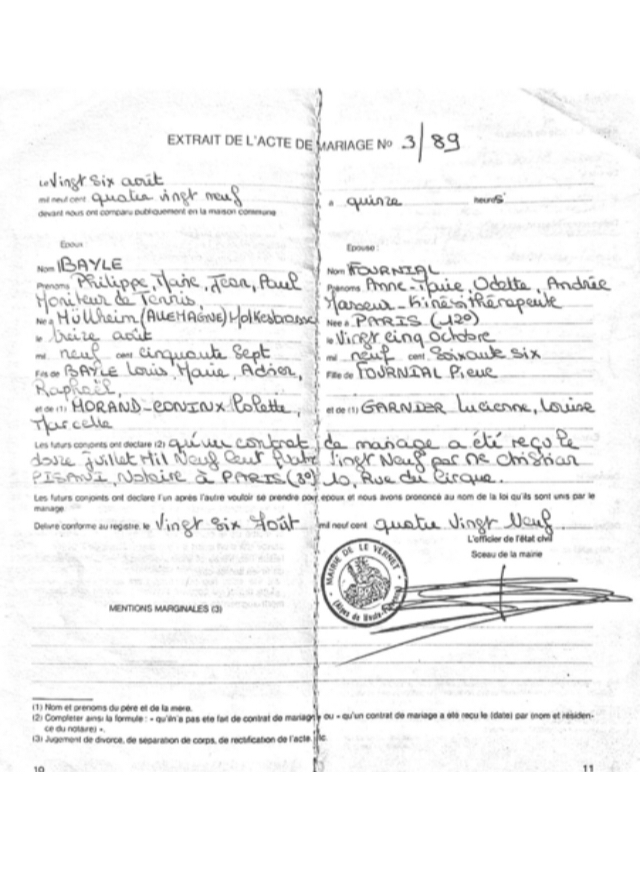 EXTRAIT DE L'ACTE DE MARIAGE No 3/89
Le Vingt Six août
mil neuf cent quatre vingt neuf à quinze heures
devant nous ont comparu publiquement en la maison commune
Epoux Epouse :
Nom BAYLE Nom FOURNIAL
Prénoms Philippe, Marie, Jean, Paul Prénoms Anne-Marie, Odette, Andrée
Moniteur de Tennis, Masseur-Kinésithérapeute
Né à Müllheim (ALLEMAGNE) Née à PARIS (12°)
le treize août le Vingt cinq Octobre
mil neuf cent cinquante Sept mil neuf cent Soixante six
Fils de BAYLE Louis, Marie, Adrien, Fille de FOURNIAL Pierre
Raphaël,
et de (1) MORAND-CONINX Colette, et de (1) GARNIER Lucienne, Louise
Marcelle
Les futurs conjoints ont déclaré (2) qu'un contrat de mariage a été reçu le
douze juillet Mil Neuf Cent Quatre Vingt Neuf par Me Christian
PISANI, Notaire à PARIS 10, Rue du Cirque.
Les futurs conjoints ont déclaré l'un après l'autre vouloir se prendre pour époux et nous avons prononcé au nom de la loi qu'ils sont unis par le
mariage
Délivré conforme au registre, le Vingt Six Août mil neuf cent quatre Vingt Neuf
L'officier de l'état civil
Sceau de la mairie
MAIRIE DE LE VERNET
MENTIONS MARGINALES (3)
(1) Nom et prénoms du père et de la mère.
(2) Compléter ainsi la formule : « qu'il n'a pas été fait de contrat de mariage » ou « qu'un contrat de mariage a été reçu le (date) par (nom et résiden-
ce du notaire) ».
(3) Jugement de divorce, de séparation de corps, de rectification de l'acte, etc.
10 11